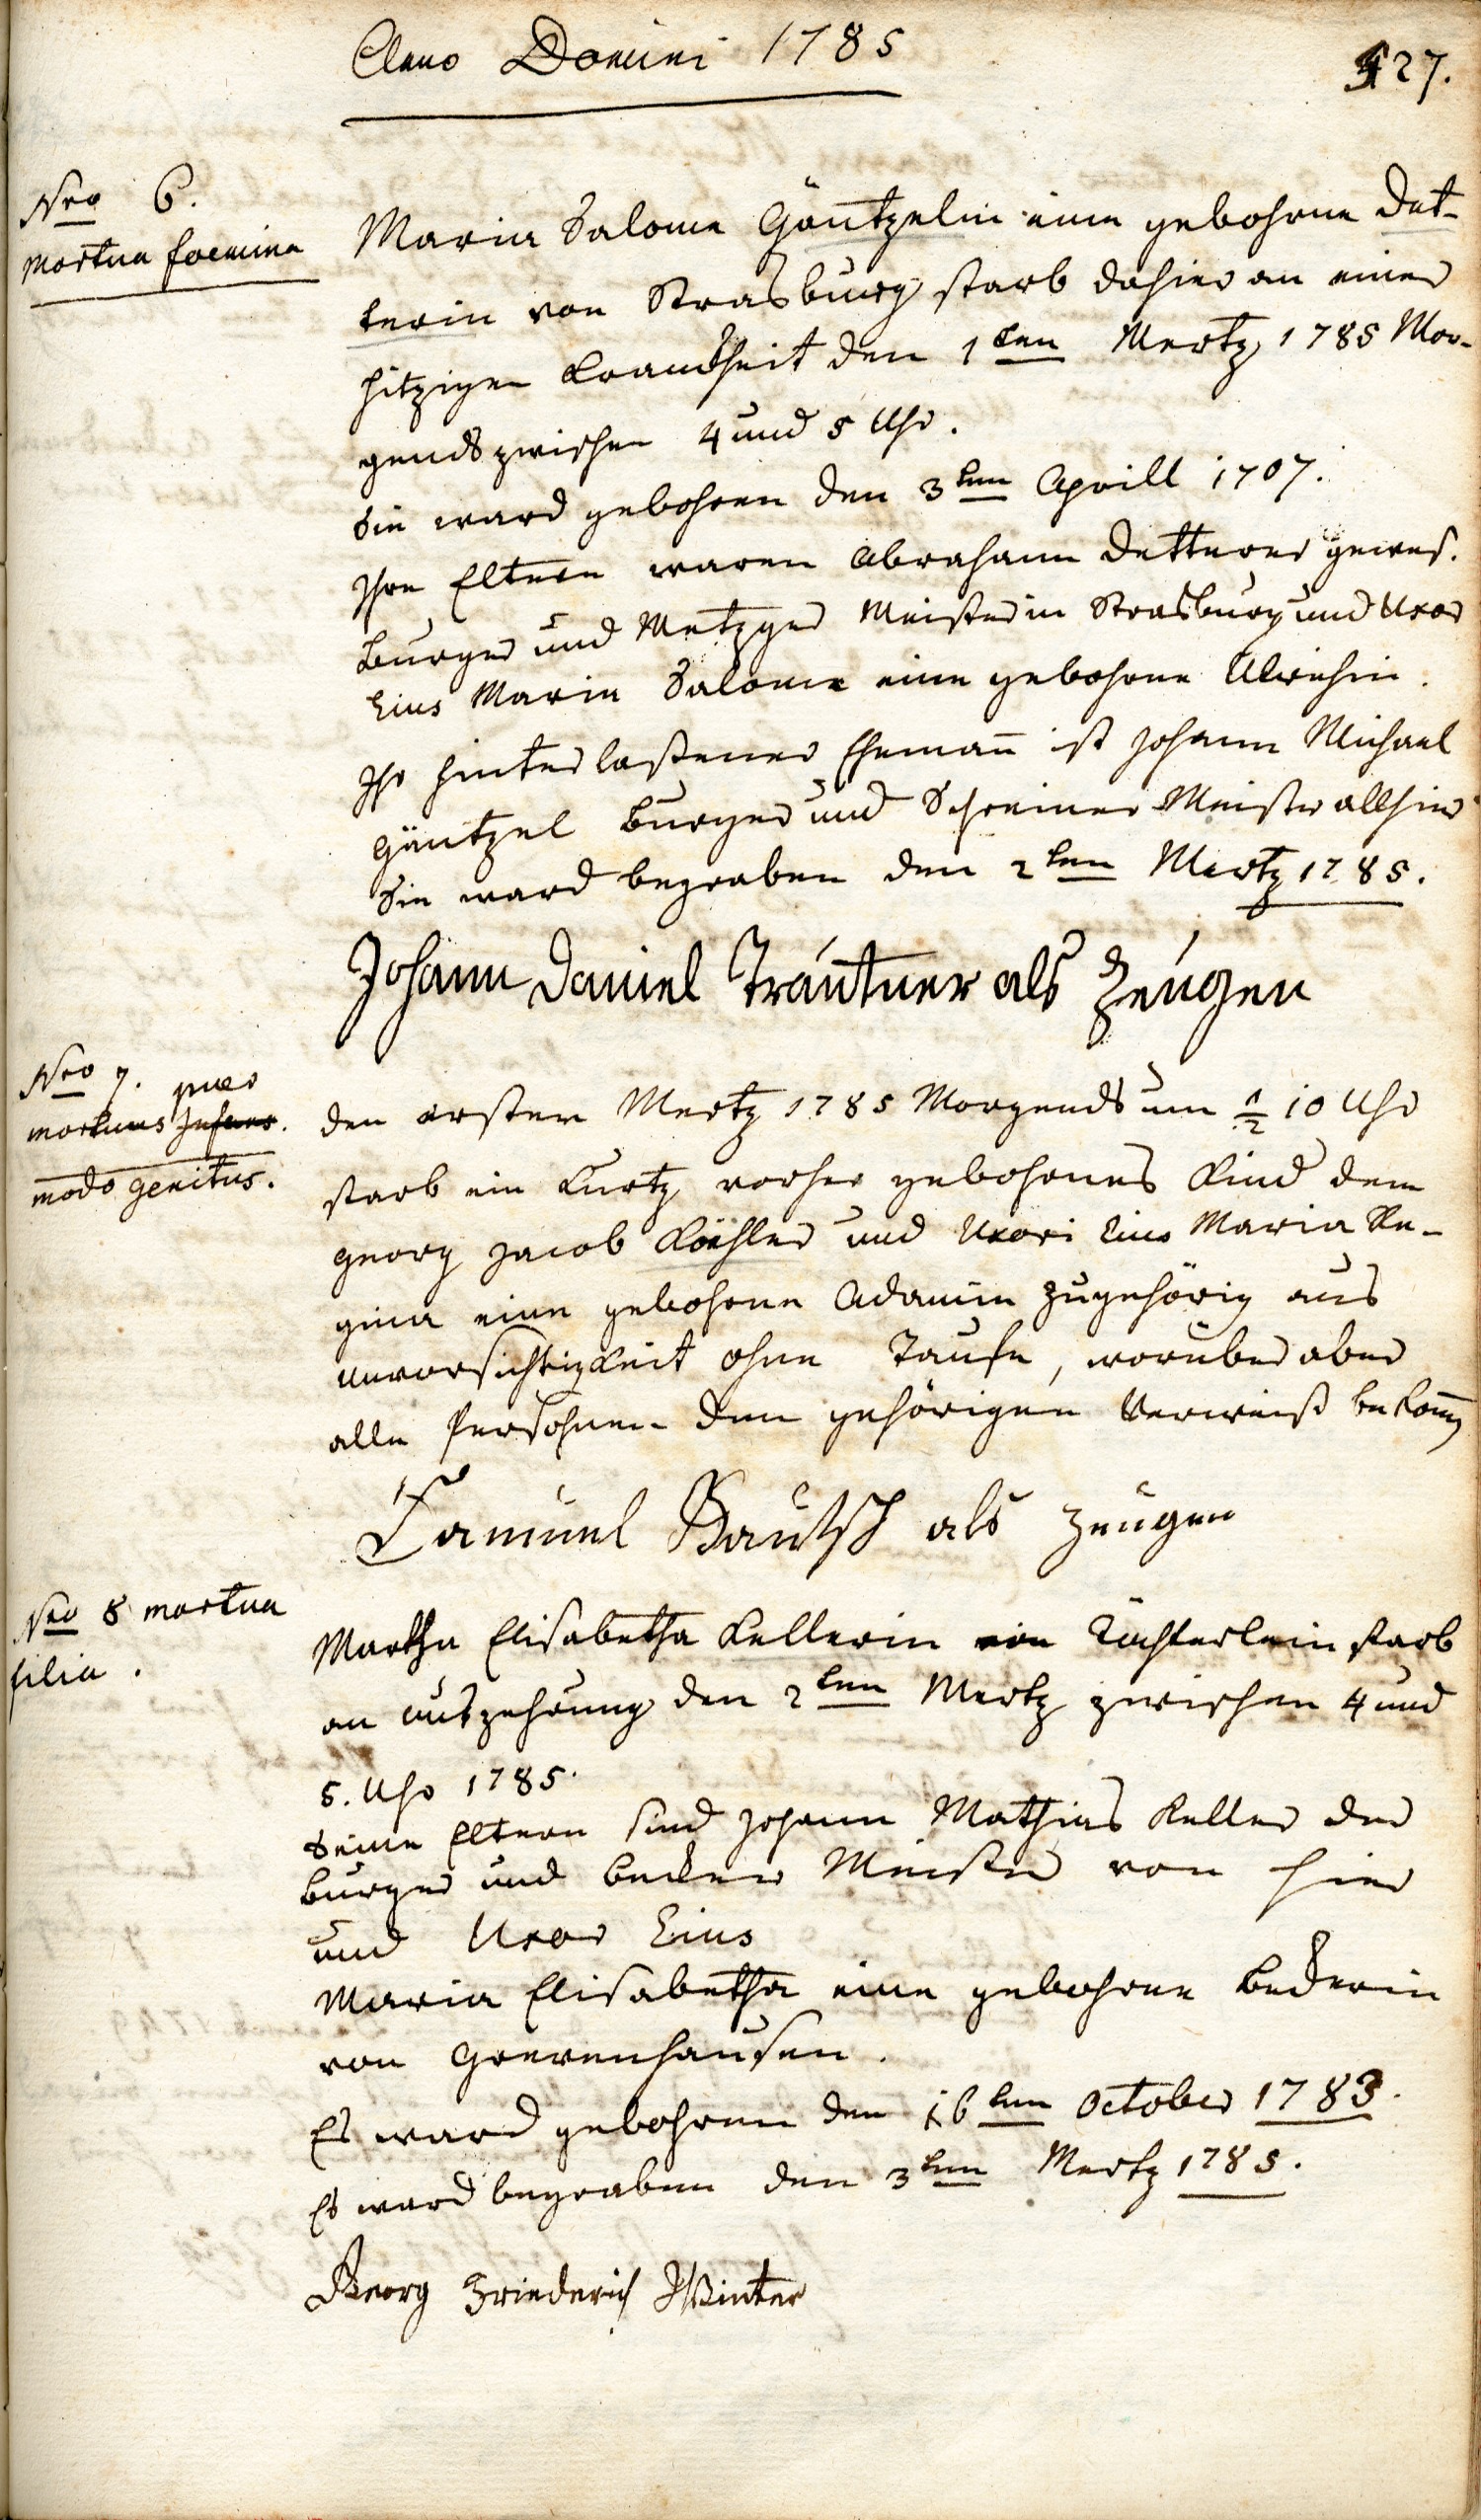 Anno Domini 1785
427.
Nro 6.
mortua foemina
Maria Salome Gäntzelin eine gebohrne Det-
terin von Strasburg starb dahier an einer
hitzigen Krandheit den 1ten Mertz 1785 Mor-
gends zwischen 4 und 5 Uhr.
Sie ward gebohren den 3ten Aprill 1707.
Ihre Eltern waren Abraham Detterer gewes.
Burger und Metzger Meister in Strasburg und Uxor
Eius Maria Salome eine gebohrne Ulrichin.
Ihr hinterlaßener Ehemañ ist Johann Michael
Gäntzel Burger und Schreiner Meister allhier
Sie ward begraben den 2ten Mertz 1785.
Johann Daniel Trautner als Zeugen
Nro 7. puer
mortuus Infans.
modo genitus.
den ersten Mertz 1785 Morgends um ½ 10 Uhr
starb ein Kurtz vorher gebohrnes Kind dem
Georg Jacob Köhler und Uxori Eius Maria Re-
gina eine gebohrne Adamin zugehörig aus
unvorsichtigkeit ohne Taufe, worüber aber
alle Persohnen den gehörigen Verweiß bekom̄
Samuel Bautsch als Zeugen
Nro 8 mortua
filia.
Martha Elisabetha Kellerin ein Töchterlein starb
an Auszehrung den 2ten Mertz zwischen 4 und
5. Uhr 1785.
Seine Eltern sind Johann Mathias Keller der
Burger und Becker Meister von hier
und Uxor Eius
Maria Elisabetha eine gebohrne Bederin
von Grevenhausen.
Es ward gebohren den 16ten October 1783.
Es ward begraben den 3ten Mertz 1785.
Georg Friederich Winter